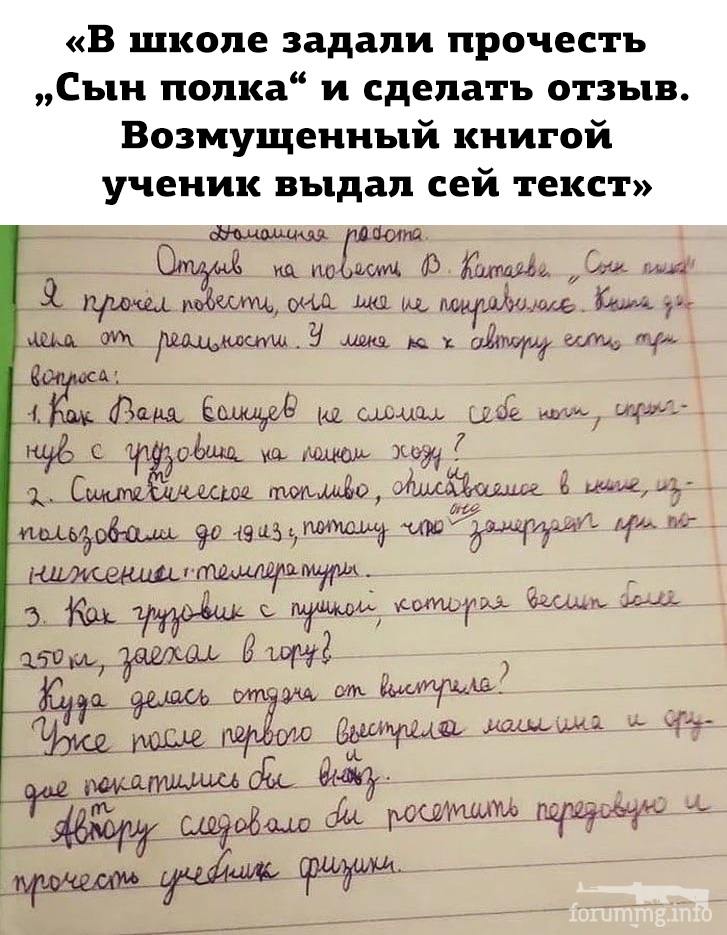 «В школе задали прочесть
„Сын полка“ и сделать отзыв.
Возмущенный книгой
ученик выдал сей текст»
Домашняя работа.
Отзыв на повесть В. Катаева „Сын полка"
Я прочёл повесть, она мне не понравилось. Книга да-
лека от реальности. У меня к автору есть три
вопроса:
1. Как Ваня Солнцев не сломал себе ноги, спрыг-
нув с грузовика на полном ходу?
2. Синтетическое топливо, описываемое в книге, из-
пользовали до 1943, потому что оно замерзает при по-
нижении температуры.
3. Как грузовик с пушкой, которая весит более
250 кг, заехал в гору?
Куда делась отдача от выстрела?
Уже после первого выстрела машина и ору-
дие покатились бы вниз.
Автору следовало бы посетить передовую и
прочесть учебник физики.
forummg.info